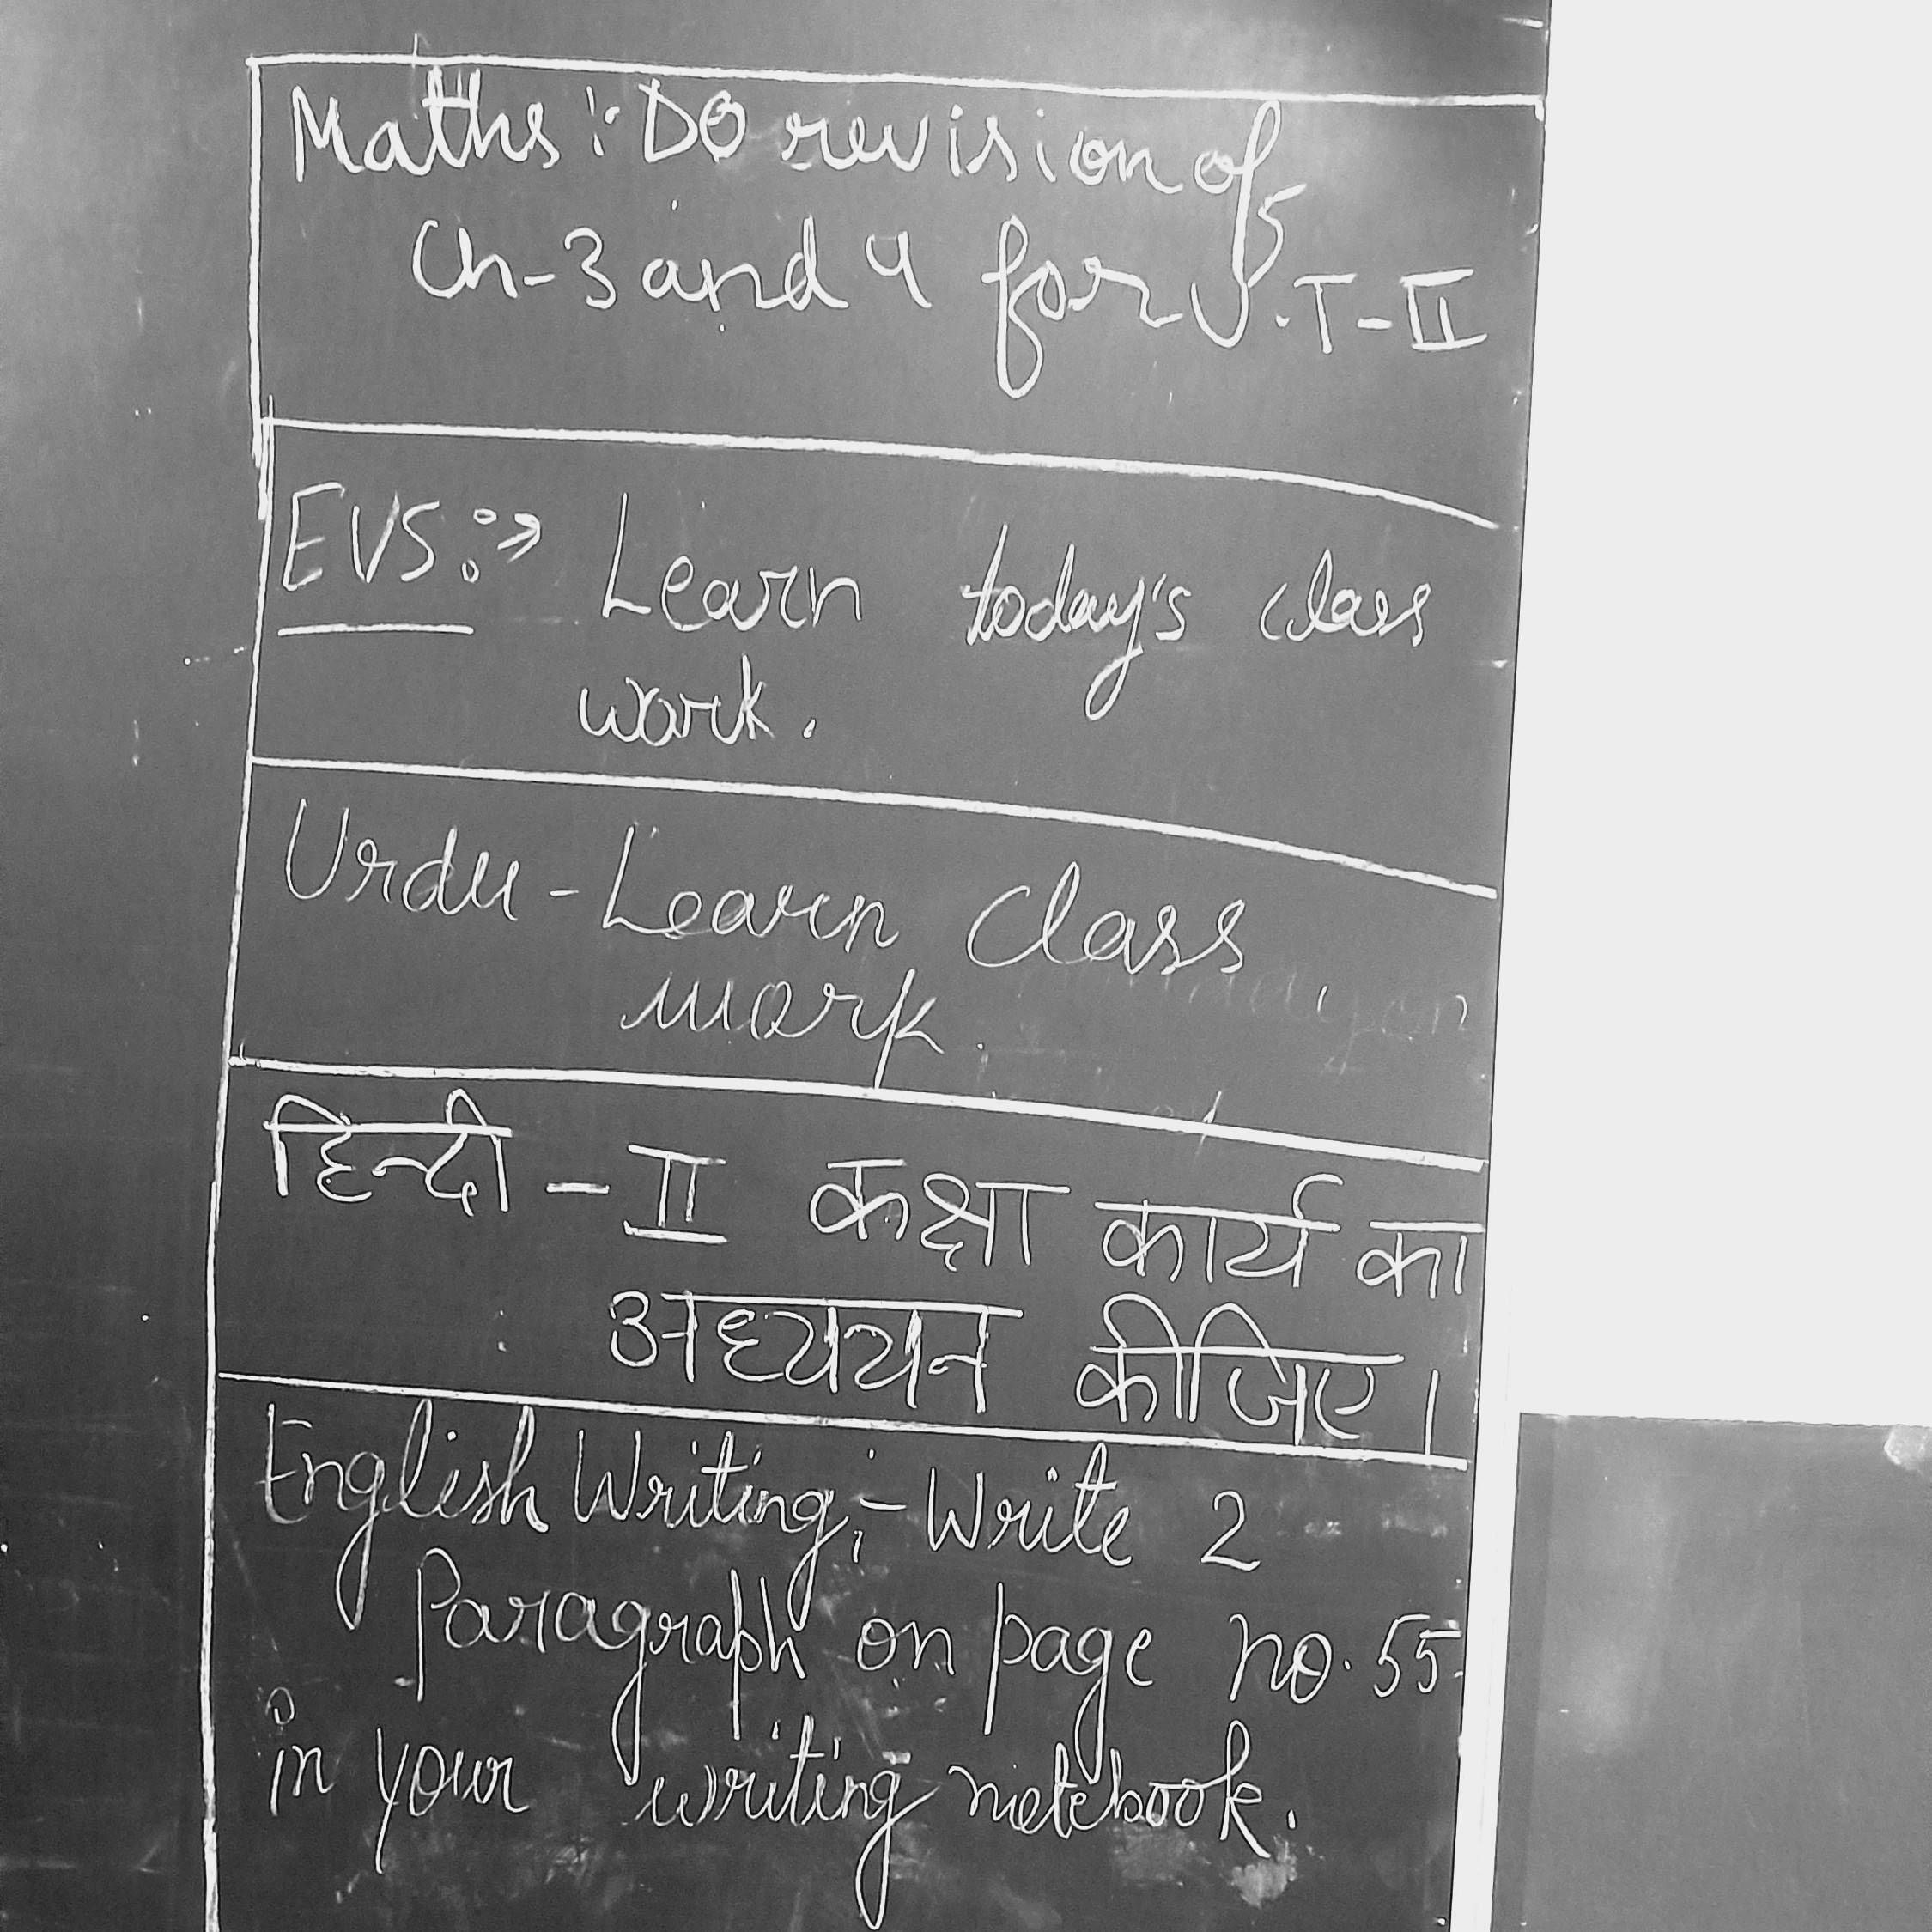 Maths :- DO revision of
Ch-3 and 4 for U.T-II
EVS :→ Learn today's class
work.
Urdu - Learn Class
work.
हिन्दी - II कक्षा कार्य का
अध्ययन कीजिए।
English Writing :- Write 2
Paragraph on page no. 55
in your writing notebook.